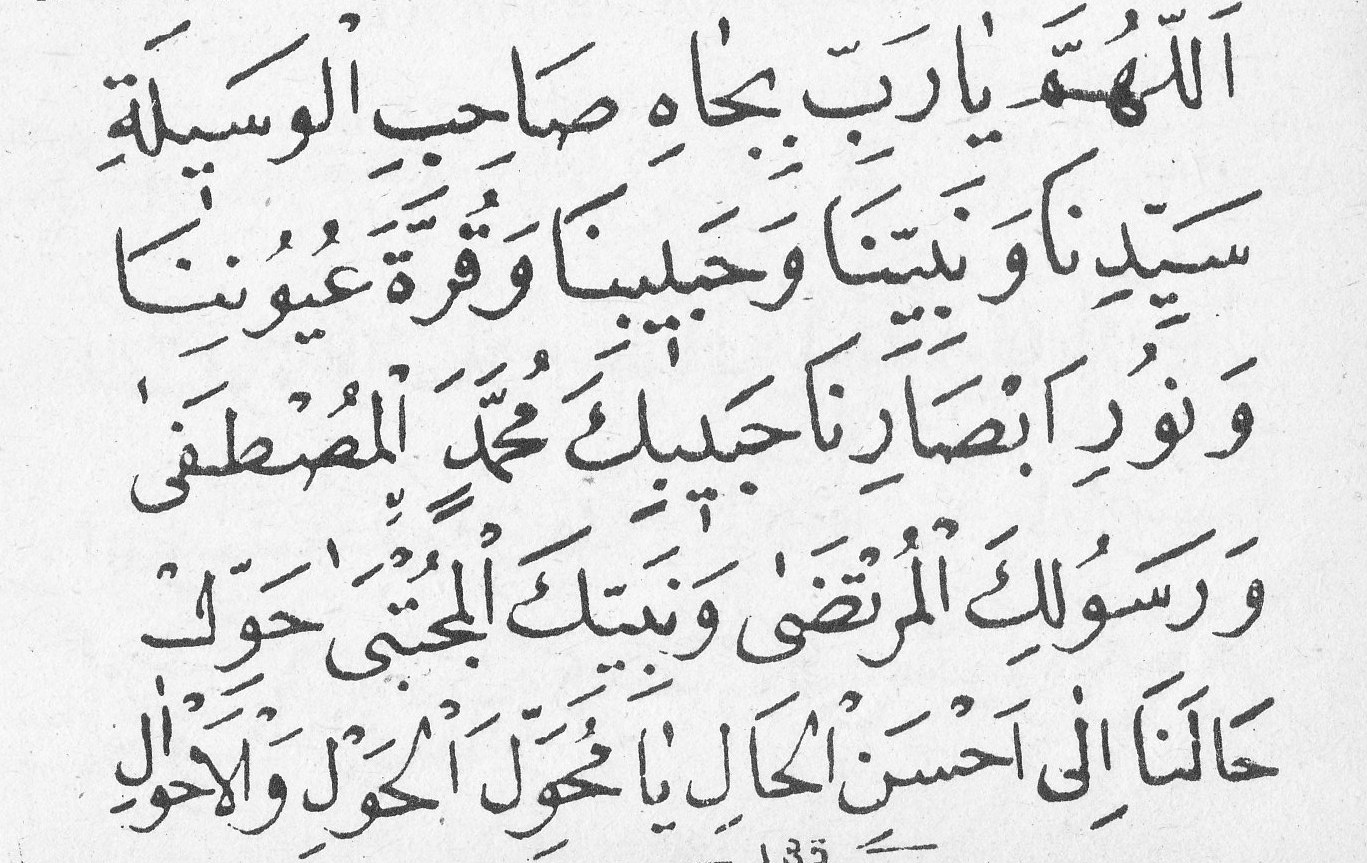 اَللّٰهُمَّ يٰا رَبِّ بِجٰاهِ صَاحِبِ الْوَسيٖلَةِ
سَيِّدِنَا وَنَبِيِّنَا وَحَبيٖبِنَا وَقُرَّةَ عُيُونِنَا
وَنُورِ اَبْصَارِنَا حَبيٖبِكَ مُحَمَّدٍ الْمُصْطَفٰى
وَرَسُولِكَ الْمُرْتَضٰى وَنَبِيِّكَ الْمُجْتَبٰى حَوِّلْ
حَالَنَا اِلٰى اَحْسَنِ الْحَالِ يٰا مُحَوِّلَ الْحَوْلِ وَالْاَحْوٰالِ
135